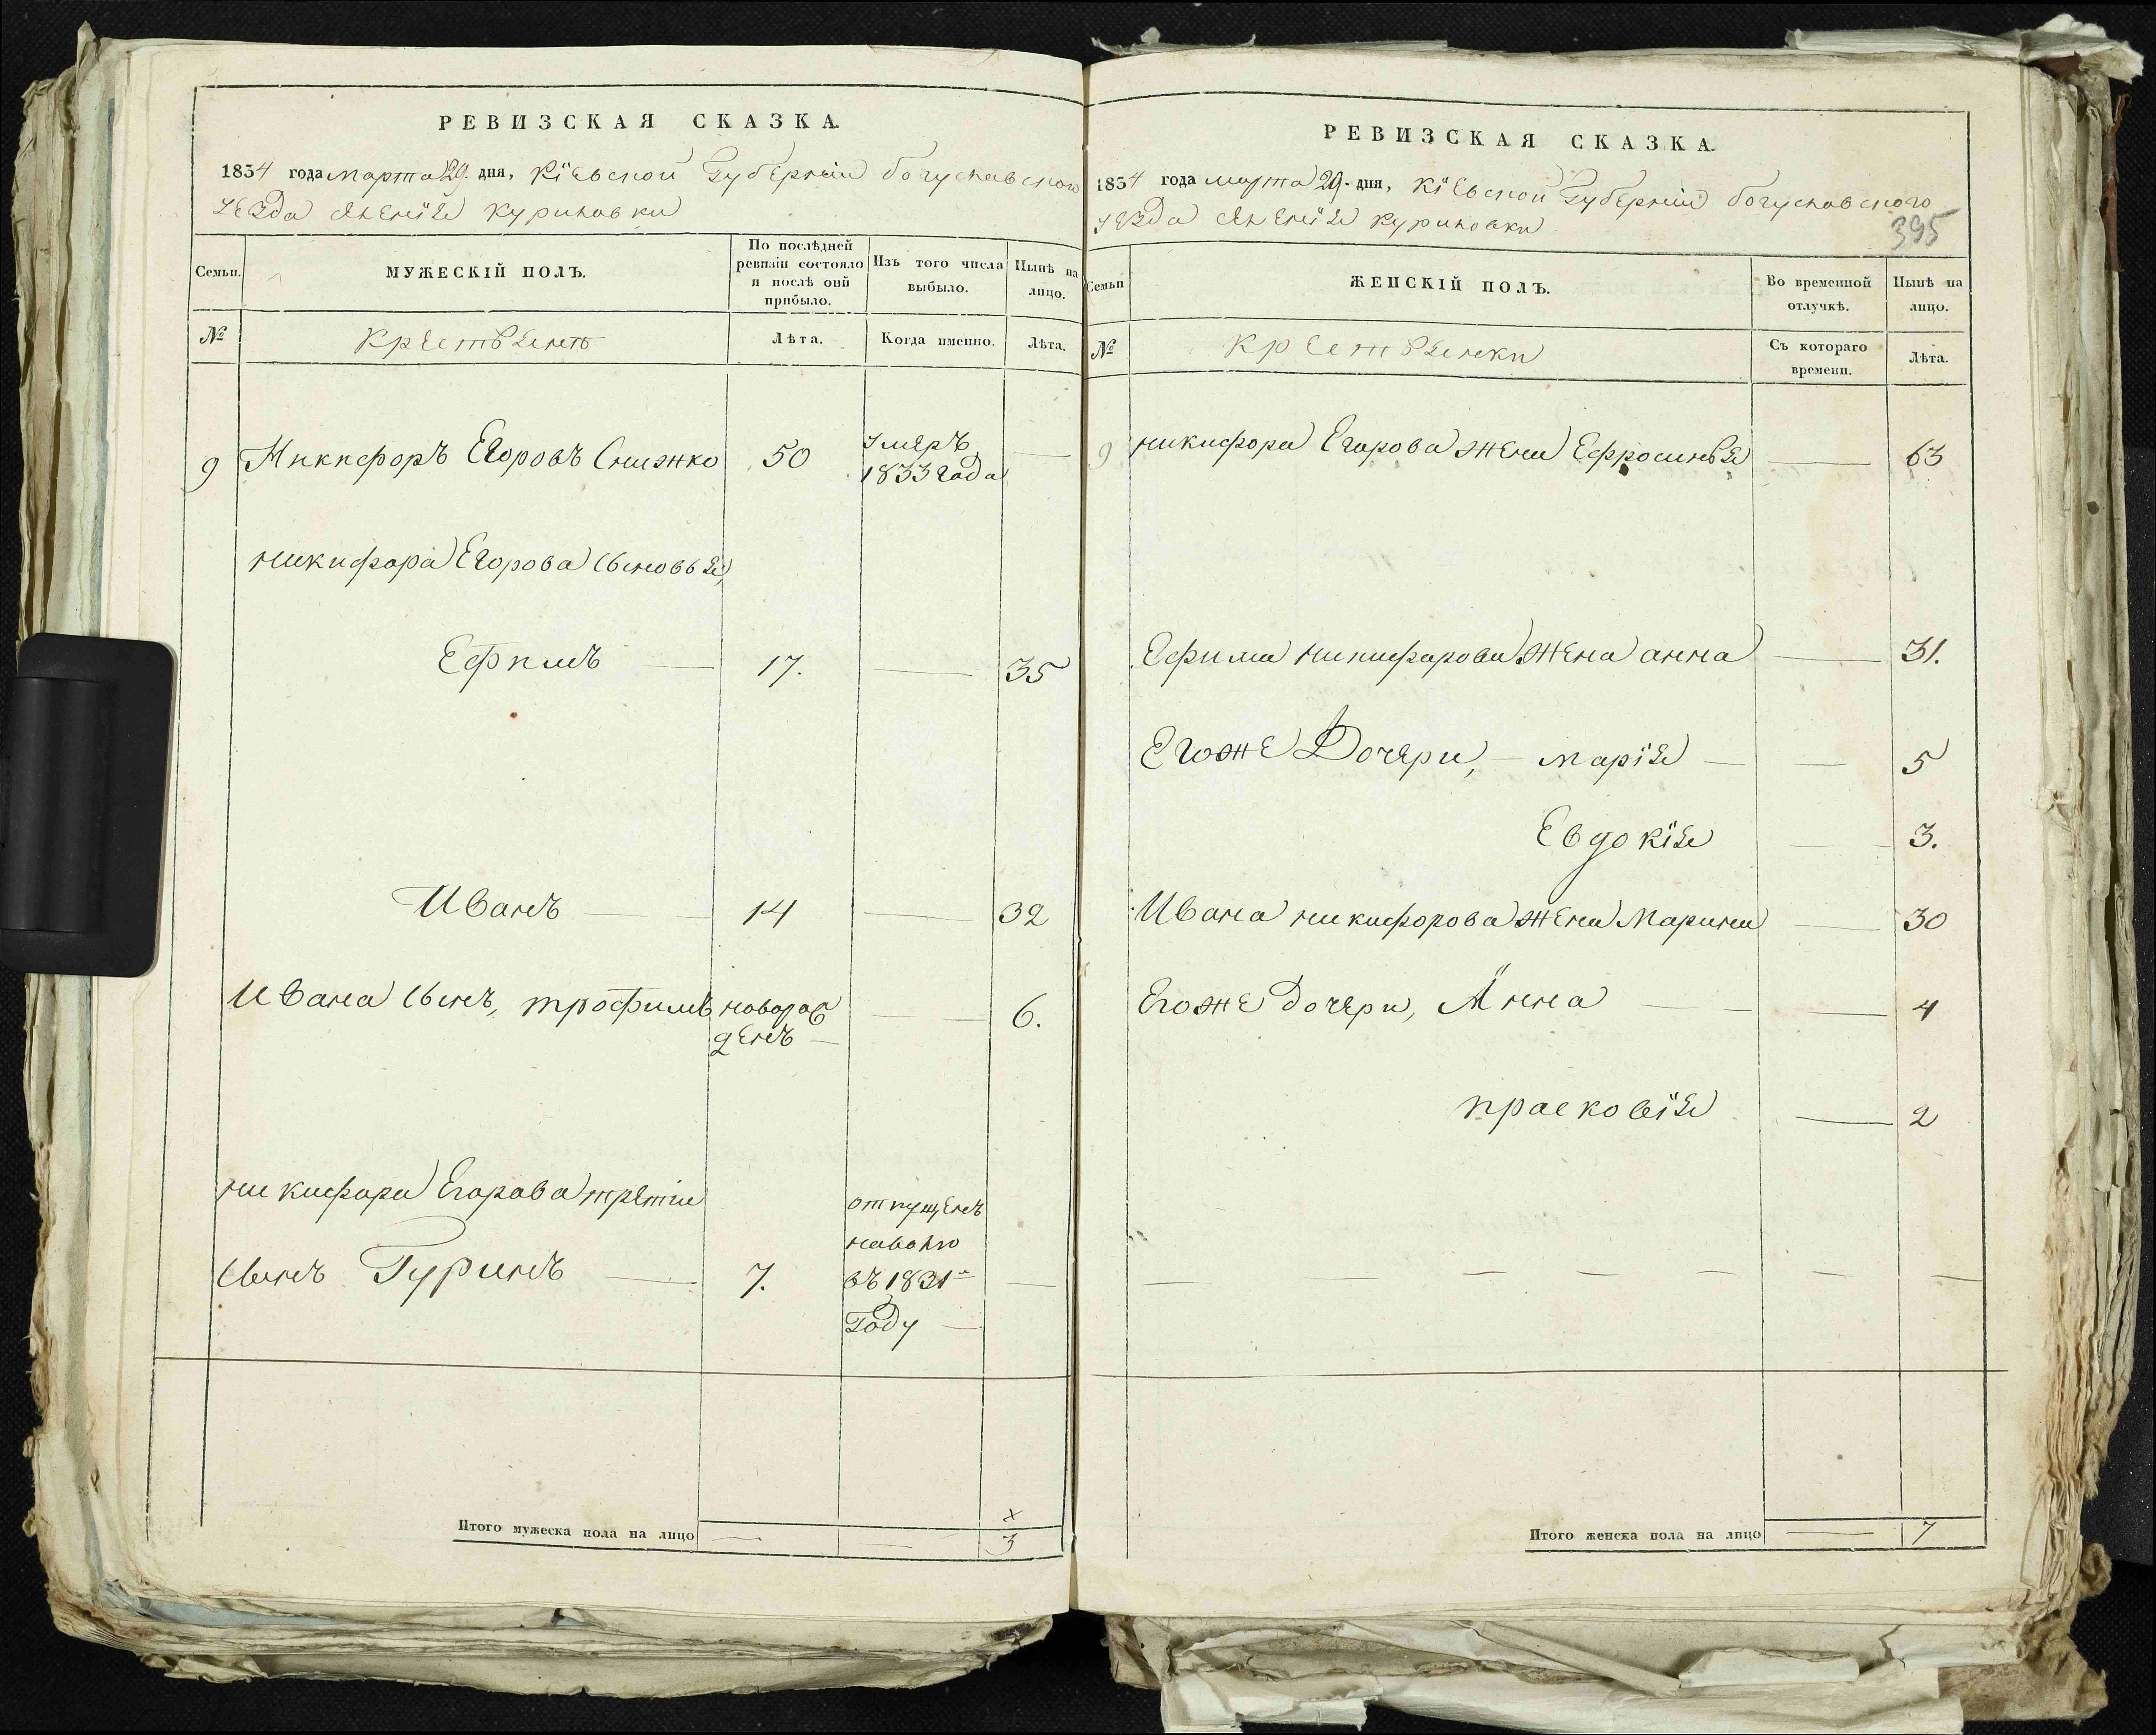 РЕВИЗСКАЯ СКАЗКА.
1834 года марта 29. дня, Кіевской Губерніи богуславского
уезда Куриловки
Семьи.
МУЖЕСКІЙ ПОЛЪ.
По послѣдней ревизіи состояло и послѣ оий прибыло.
Изъ того числа выбыло.
Нынѣ на лицо.
№
крестьянъ
Лѣта.
Когда именно.
Лѣта.
9 Никифоръ Егоровъ Снижко 50 умеръ 1833 года —
никифора Егорова сыновья,
Ефимъ — 17. — 35
Иванъ — 14 — 32
Ивана сынъ, трофимъ новорож денъ — — 6.
никифора Егорова третiи
сынъ Гуринъ — 7. отпущенъ наволю въ 1831м Году — —
Итого мужеска пола на лицо — — 3
РЕВИЗСКАЯ СКАЗКА.
1834 года марта 29. дня, Кіевской Губерніи богуславского
уезда Куриловки
395
Семьи
ЖЕНСКІЙ ПОЛЪ.
Во временной отлучкѣ.
Нынѣ на лицо.
№
крестьянки
Съ котораго времени.
Лѣта.
9 никифора Егорова жена Ефросинья — 63
Ефима никифорова жена анна — 31.
Егоже Дочери, — марія — — 5
Евдокія — 3.
Ивана никифорова жена Марина — 30
Егоже дочери, Анна — — 4
прасковія — 2
— — — — — —
Итого женска пола на лицо — 7